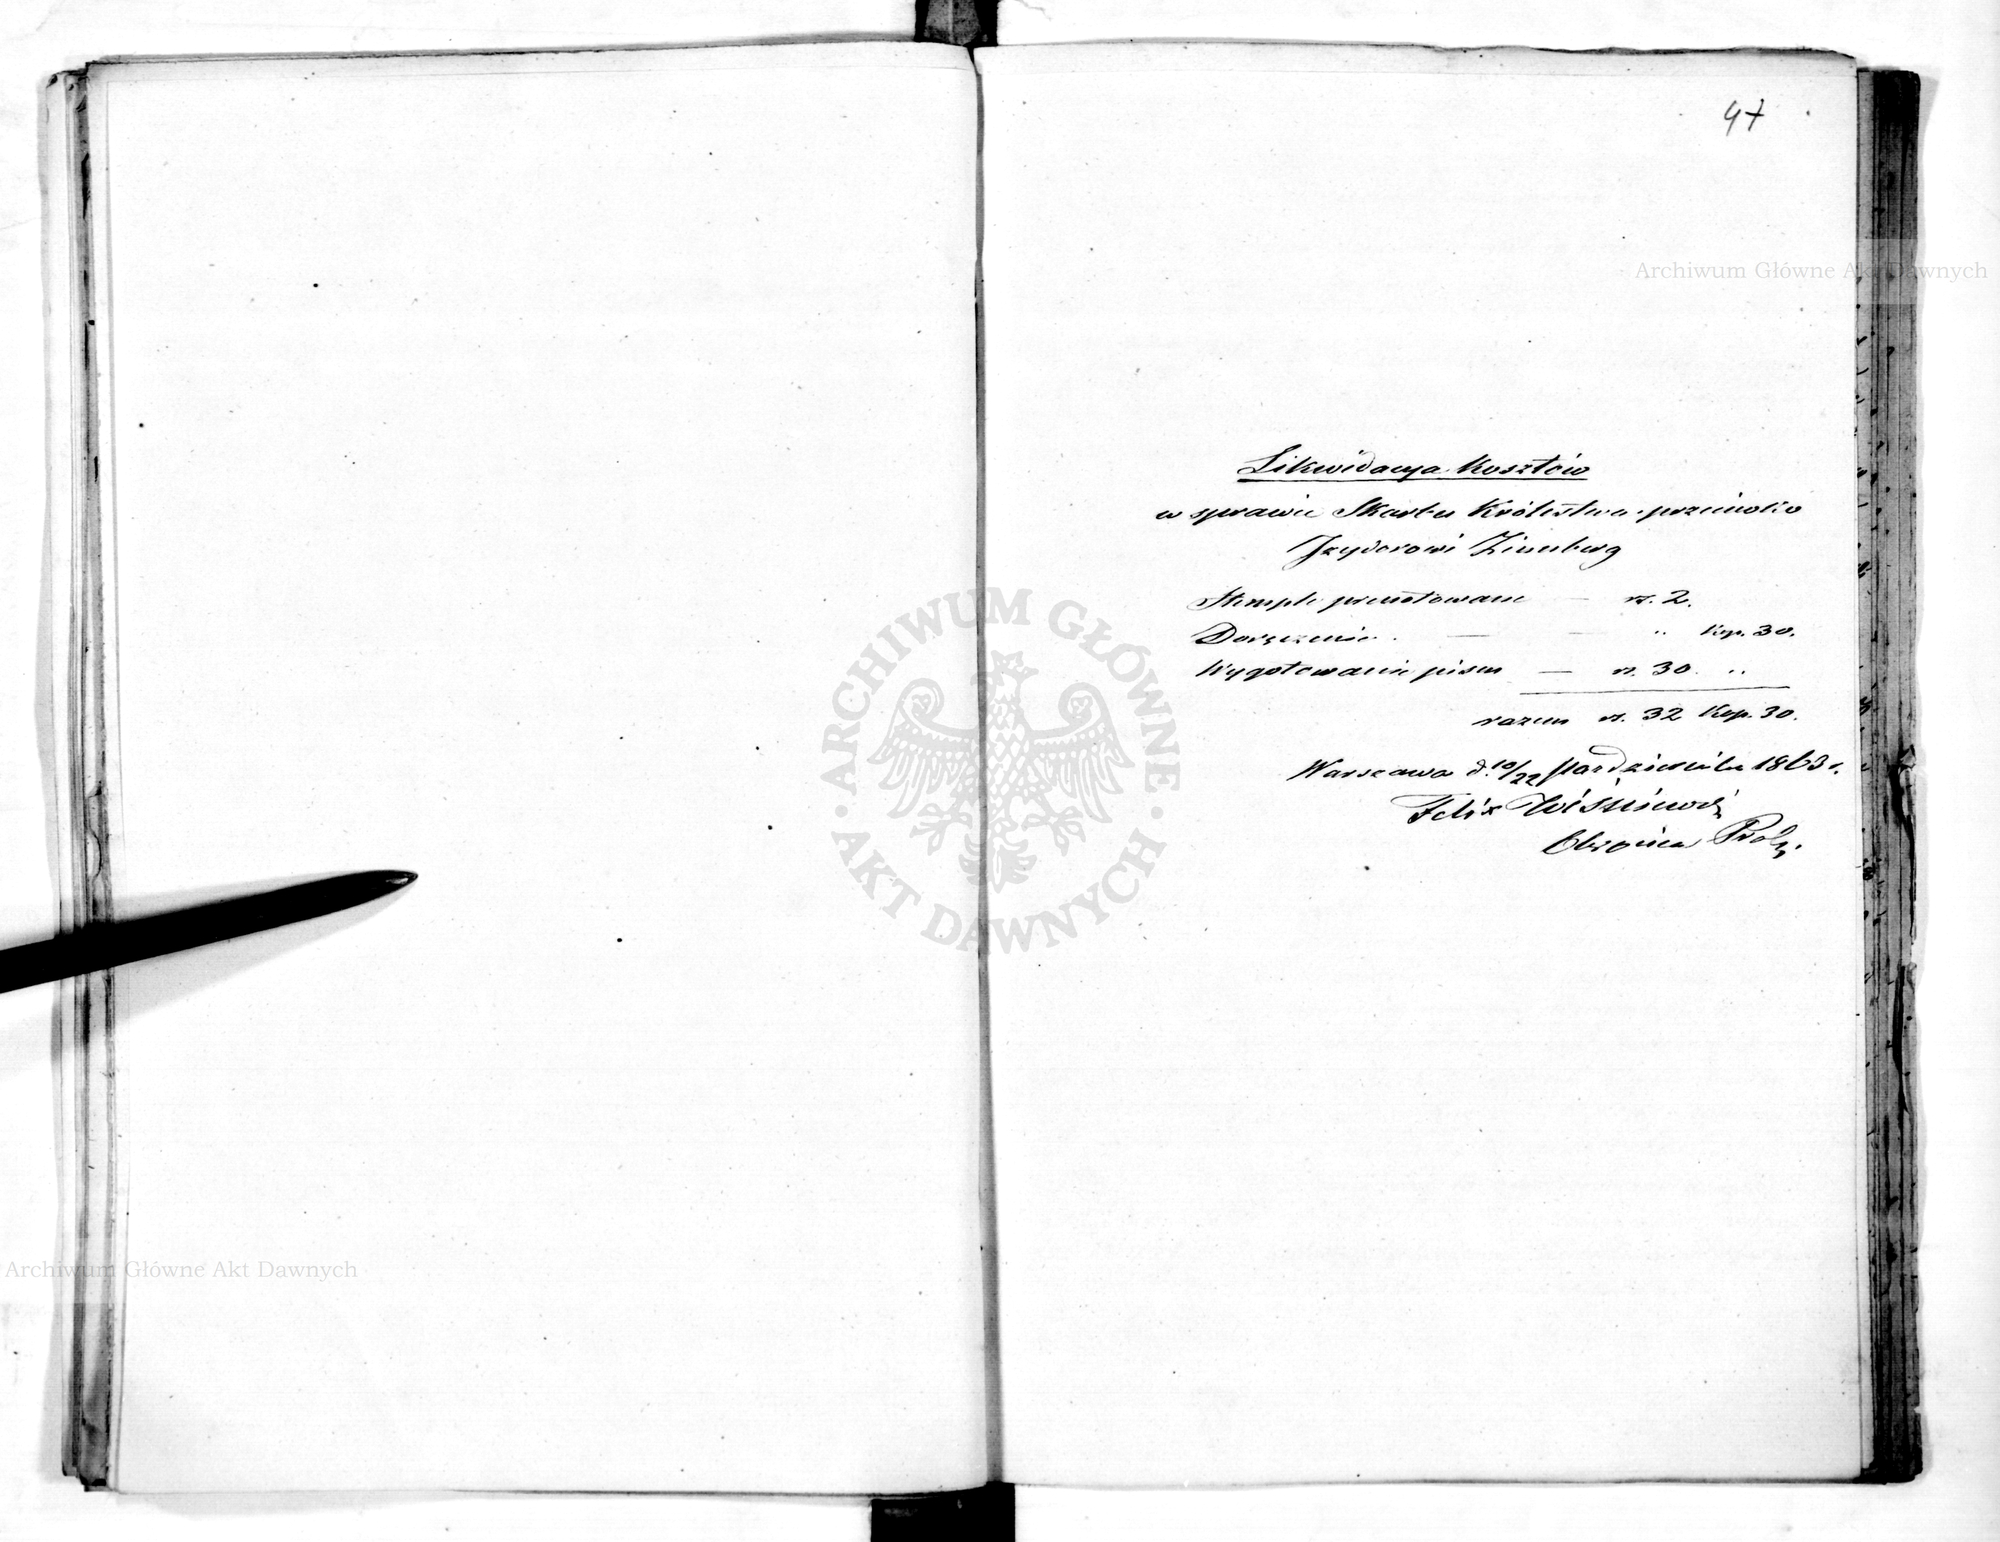 47
Archiwum Główne Akt Dawnych
Likwidacya Kosztów
w sprawie Skarbu Królestwa przeciwko
Izydorowi Zimberg
Stemple prenotowane — rs. 2.
Doręczenie . — — " Kop. 30.
Wygotowanie pism — rs. 30. "
razem rs. 32 Kop. 30.
Warszawa d. 10/22 Października 1863 r.
Felix Wiśniewski
Obrońca Prok.
ARCHIWUM GŁÓWNE
· AKT DAWNYCH ·
Archiwum Główne Akt Dawnych